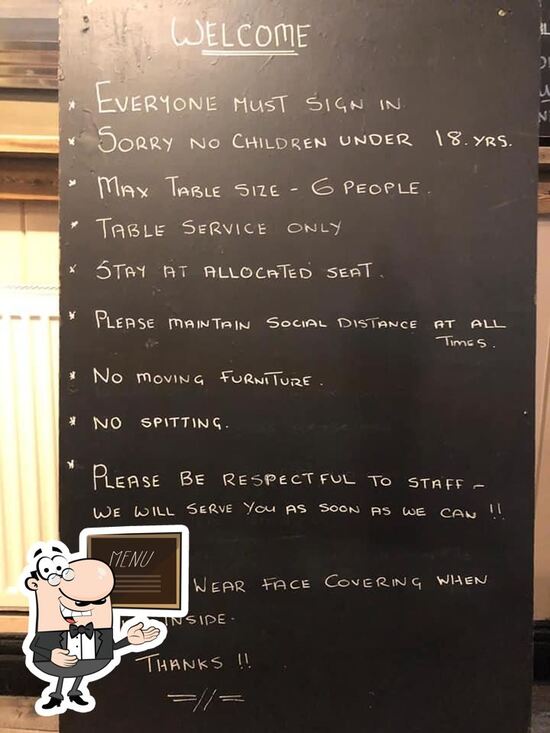 WELCOME
* EVERYONE MUST SIGN IN
* SORRY NO CHILDREN UNDER 18. YRS.
* MAX TABLE SIZE - 6 PEOPLE.
* TABLE SERVICE ONLY
* STAY AT ALLOCATED SEAT.
* PLEASE MAINTAIN SOCIAL DISTANCE AT ALL
TIMES.
* NO MOVING FURNITURE.
* NO SPITTING.
* PLEASE BE RESPECTFUL TO STAFF -
WE WILL SERVE YOU AS SOON AS WE CAN !!
MENU
WEAR FACE COVERING WHEN
NSIDE.
THANKS !!